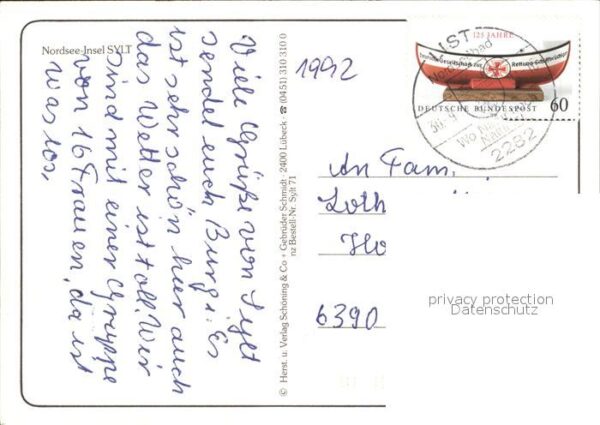 Nordsee-Insel SYLT
Viele Grüße von Sylt
sendet euch Burgi. Es
ist sehr schön hier auch
das Wetter ist toll. Wir
sind mit einer Gruppe
von 16 Frauen, da ist
was los,
© Herst. u. Verlag Schöning & Co + Gebrüder Schmidt · 2400 Lübeck · ☎ (0451) 310 310 0
nz Bestell-Nr. Sylt 71
1992
125 JAHRE
Deutsche Gesellschaft zur Rettung Schiffbrüchiger
DEUTSCHE BUNDESPOST
60
LIST
Nordseebad
2282
An Fam.
Loth
Ho
6390
privacy protection
Datenschutz